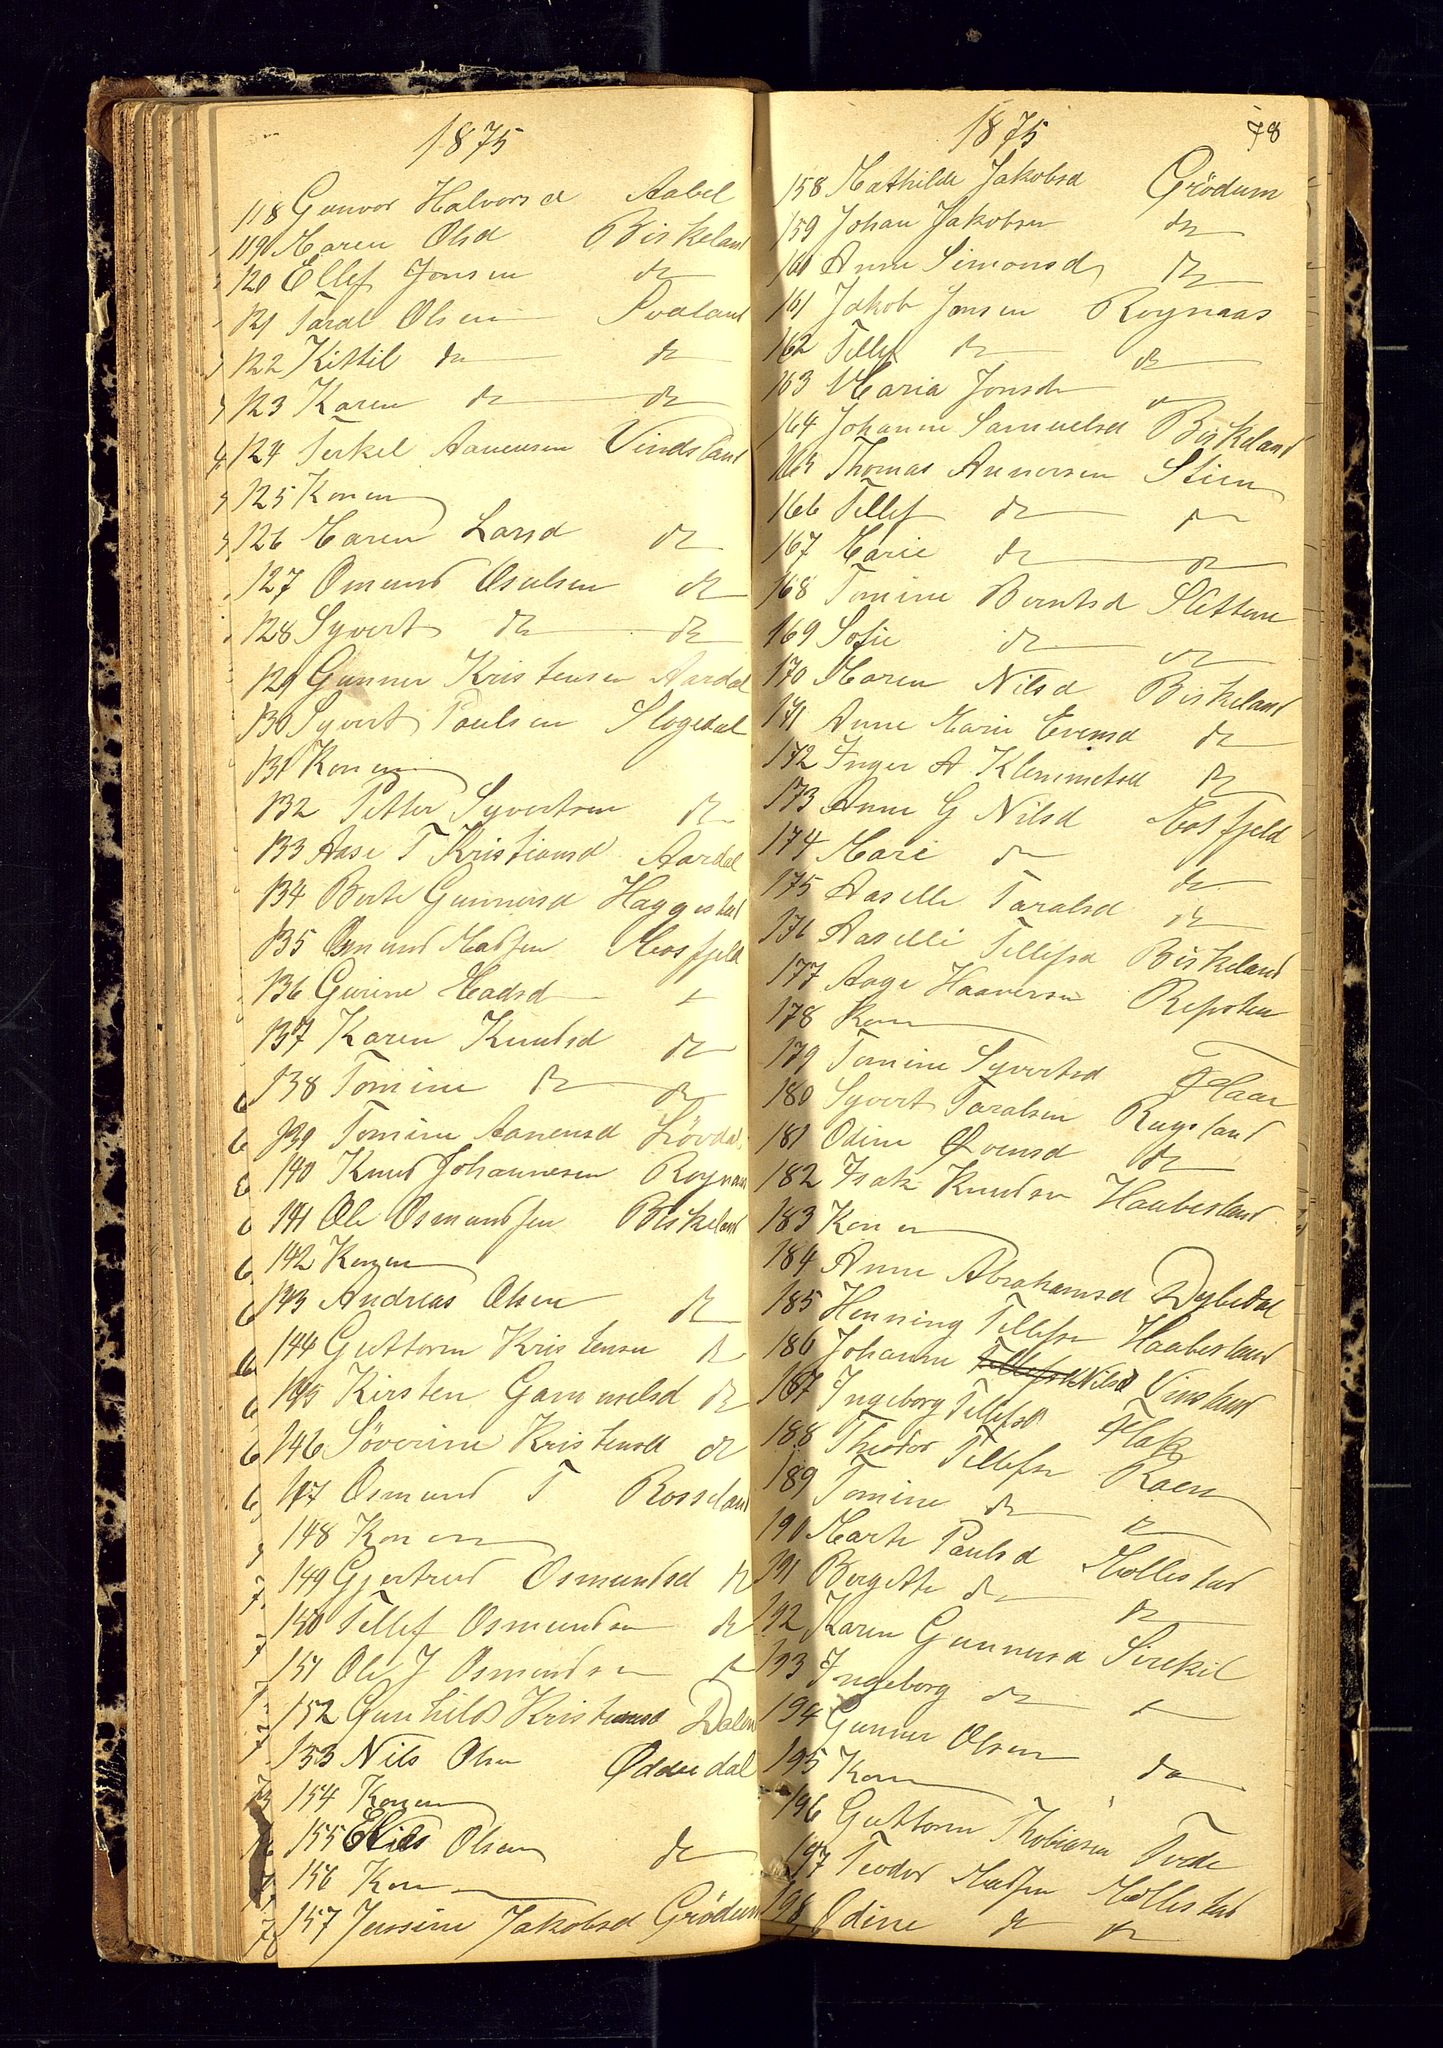 1875
118 Gunvor Halvorsd Aabel
119 Maren Olsd Birkeland
120 Ellef Jonsen do
121 Taral Olsen Svaland
122 Kittil do do
123 Karen do do
124 Terkel Aanensen Vindsland
125 Konen
126 Maren Larsd do
127 Osmund Osulsen do
128 Syvert do do
129 Gunner Kristensen Aardal
130 Syvert Paulsen Slogedal
131 Konen
132 Petter Syvertsen do
133 Aase T Kristiansd Aardal
134 Berte Gunnersd Haggestad
135 Osmund Madsen Mosfjeld
136 Gurine Madsd
137 Karen Knutsd do
138 Tomine do do
139 Tomine Aanensd Løvdal
140 Knud Johannesen Roynaas
141 Ole Osmundsen Birkeland
142 Konen
143 Andreas Olsen do
144 Guttorm Kristensen do
145 Kirsten Gammelsd do
146 Søverine Kristensd do
147 Osmund T Rosseland
148 Konen
149 Gjertrud Osmundsd do
150 Tellef Osmundsen do
151 Ole J Osmundsen
152 Gunhild Kristensd Dalen
153 Nils Olsen Øddendal
154 Konen
155 Elias Olsen do
156 Kone
157 Jensine Jakobsd Grödum
1875
78
158 Mathilde Jakobsd Grödum
159 Johan Jakobsen do
160 Anne Simonsd do
161 Jakob Jensen Roynaas
162 Tellef do do
163 Maria Jonsd do
164 Johanne Samuelsd Birkeland
165 Thomas Annersen Stien
166 Tellef do do
167 Marie do do
168 Tomine Berntsd Slettene
169 Sofie do do
170 Maren Nilsd Birkeland
171 Anne Marie Evensd do
172 Inger A Klemmetsd do
173 Anne G Nilsd Mosfjeld
174 Mari do do
175 Aaselle Taralsd do
176 Aaselli Tellefsd Birkeland
177 Aage Haaversen Repsten
178 Kone
179 Tomine Syvertsd Flaa
180 Syvert Taralsen Rugsland
181 Odine Evensd do
182 Isak Knudsen Haabesland
183 Konen
184 Anne Abrahamsd Dybedal
185 Henning Tellefsen Haabesland
186 Johanne Tellefsd Nilsd Vinsland
187 Ingeborg Tellefsd Flak
188 Theodor Tellefsen Roen
189 Tomine do do
190 Marte Paulsd Mollestad
191 Bergette do do
192 Karen Gunnersd Sirekil
193 Ingeborg do
194 Gunner Olsen do
195 Kone
196 Guttorm Thobiasen Tvede
197 Teodor Madsen Mollestad
198 Odine do do